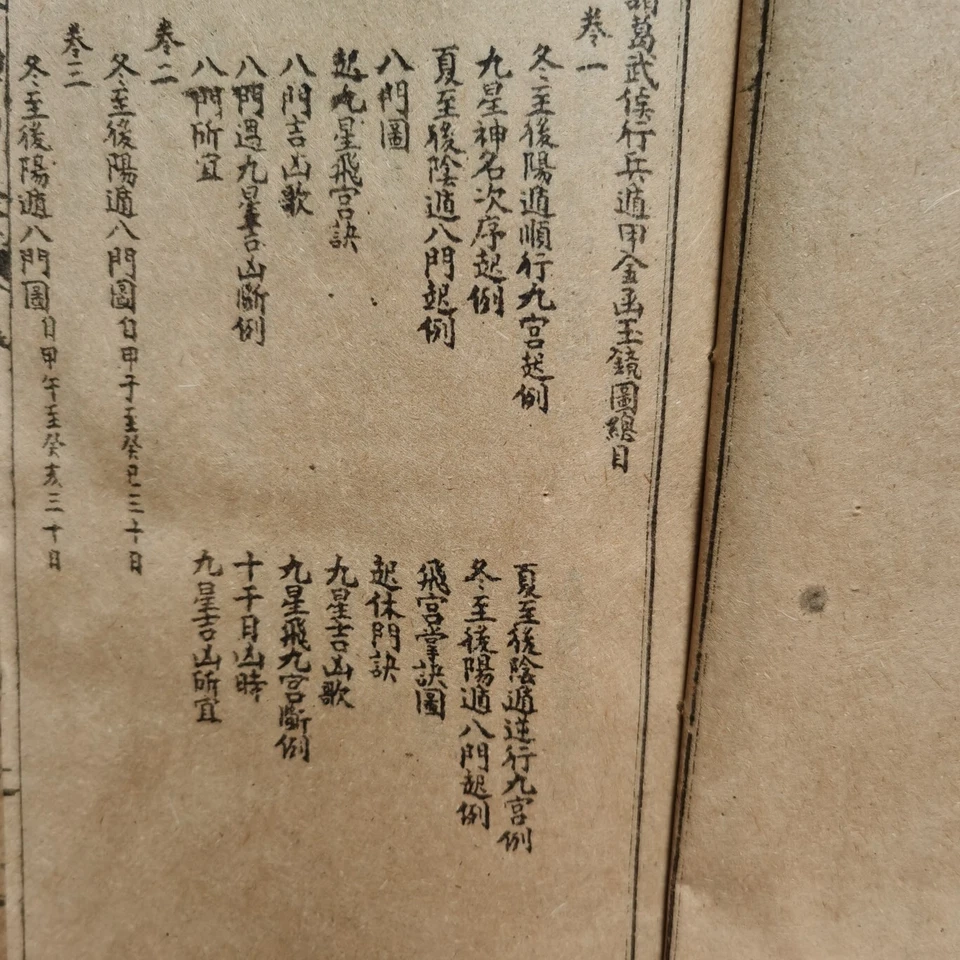 諸葛武侯行兵遁甲金函玉鏡圖總目
卷一
冬至後陽遁順行九宮起例
夏至後陰遁逆行九宮例
九星神名次序起例
冬至後陽遁八門起例
夏至後陰遁八門起例
飛宮掌訣圖
八門圖
起休門訣
起九星飛宮訣
九星吉凶歌
八門吉凶歌
九星飛九宮斷例
八門遇九星吉凶斷例
十干日凶時
八門所宜
九星吉凶所宜
卷二
冬至後陽遁八門圖自甲子至癸巳三十日
卷三
冬至後陽遁八門圖自甲午至癸亥三十日